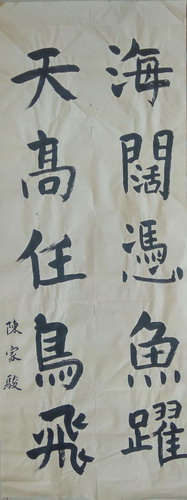 海闊憑魚躍
天高任鳥飛
陳家駿